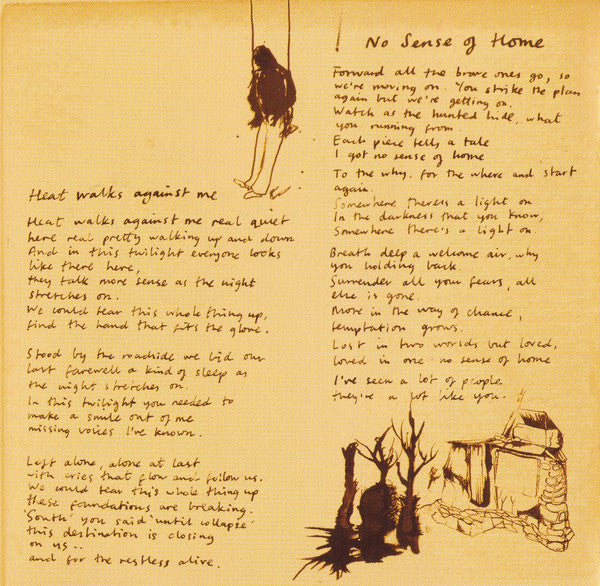 Heat walks against me
Heat walks against me real quiet
here real pretty walking up and down
And in this twilight everyone looks
like there here,
they talk more sense as the night
stretches on.
We could tear this whole thing up,
find the hand that fits the glove.
Stood by the roadside we bid our
last farewell a kind of sleep as
the night stretches on.
In this twilight you needed to
make a smile out of me
missing voices I've known.
Left alone, alone at last
with cries that flow and follow us.
We could tear this whole thing up
these foundations are breaking.
'South' you said 'until collapse'
this destination is closing
on us..
and for the restless alive.
No Sense of Home
Forward all the brave ones go, so
we're moving on. You strike the plan
again but we're getting on.
Watch as the hunted hide, what
you running from
Each piece tells a tale
I got no sense of home
To the why. for the where and start
again.
Somewhere theres a light on
In the darkness that you know,
Somewhere there's a light on
Breath deep a welcome air, why
you holding back.
Surrender all your fears, all
else is gone.
More in the way of chance,
temptation grows.
Lost in two worlds but loved,
loved in one - no sense of home
I've seen a lot of people
they're a lot like you.